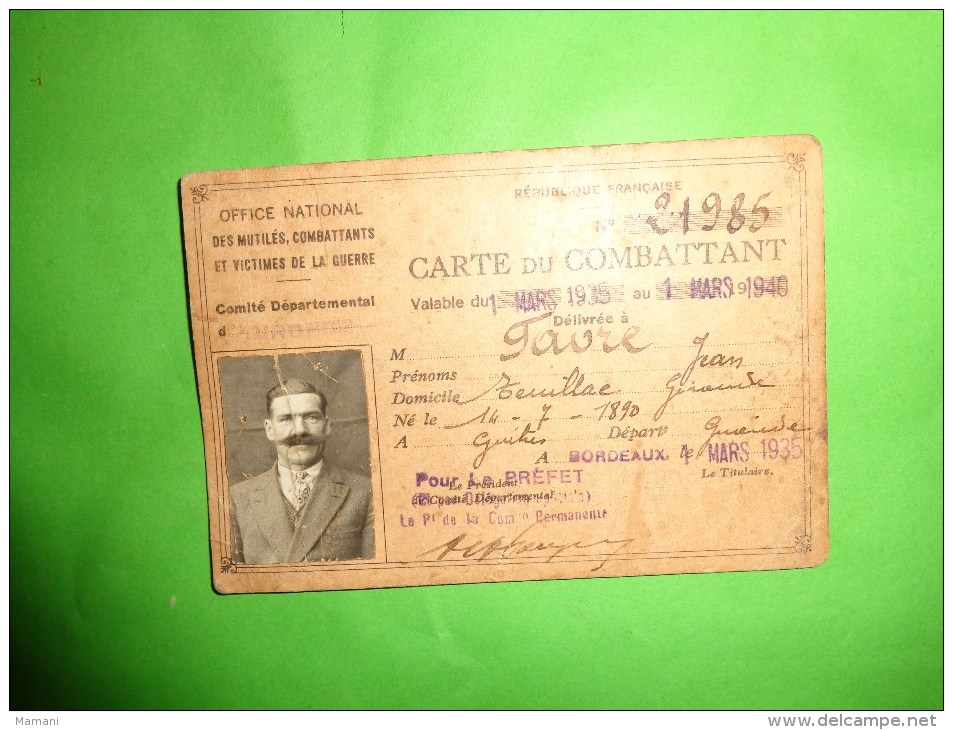 RÉPUBLIQUE FRANÇAISE
OFFICE NATIONAL
DES MUTILÉS, COMBATTANTS
ET VICTIMES DE LA GUERRE
Comité Départemental
d
N° 21985
CARTE DU COMBATTANT
Valable du 1 MARS 1935 au 1 MARS 1940
Délivrée à
M Favre
Prénoms Jean
Domicile Teuillac Gironde
Né le 14-7-1890
A Guitres Départ Gironde
A BORDEAUX, le 1 MARS 1935
Pour Le PRÉFET
Le Président
du Comité Départemental,
Le Titulaire.
Le Pt de la Com Permanente
Mamani
www.delcampe.net